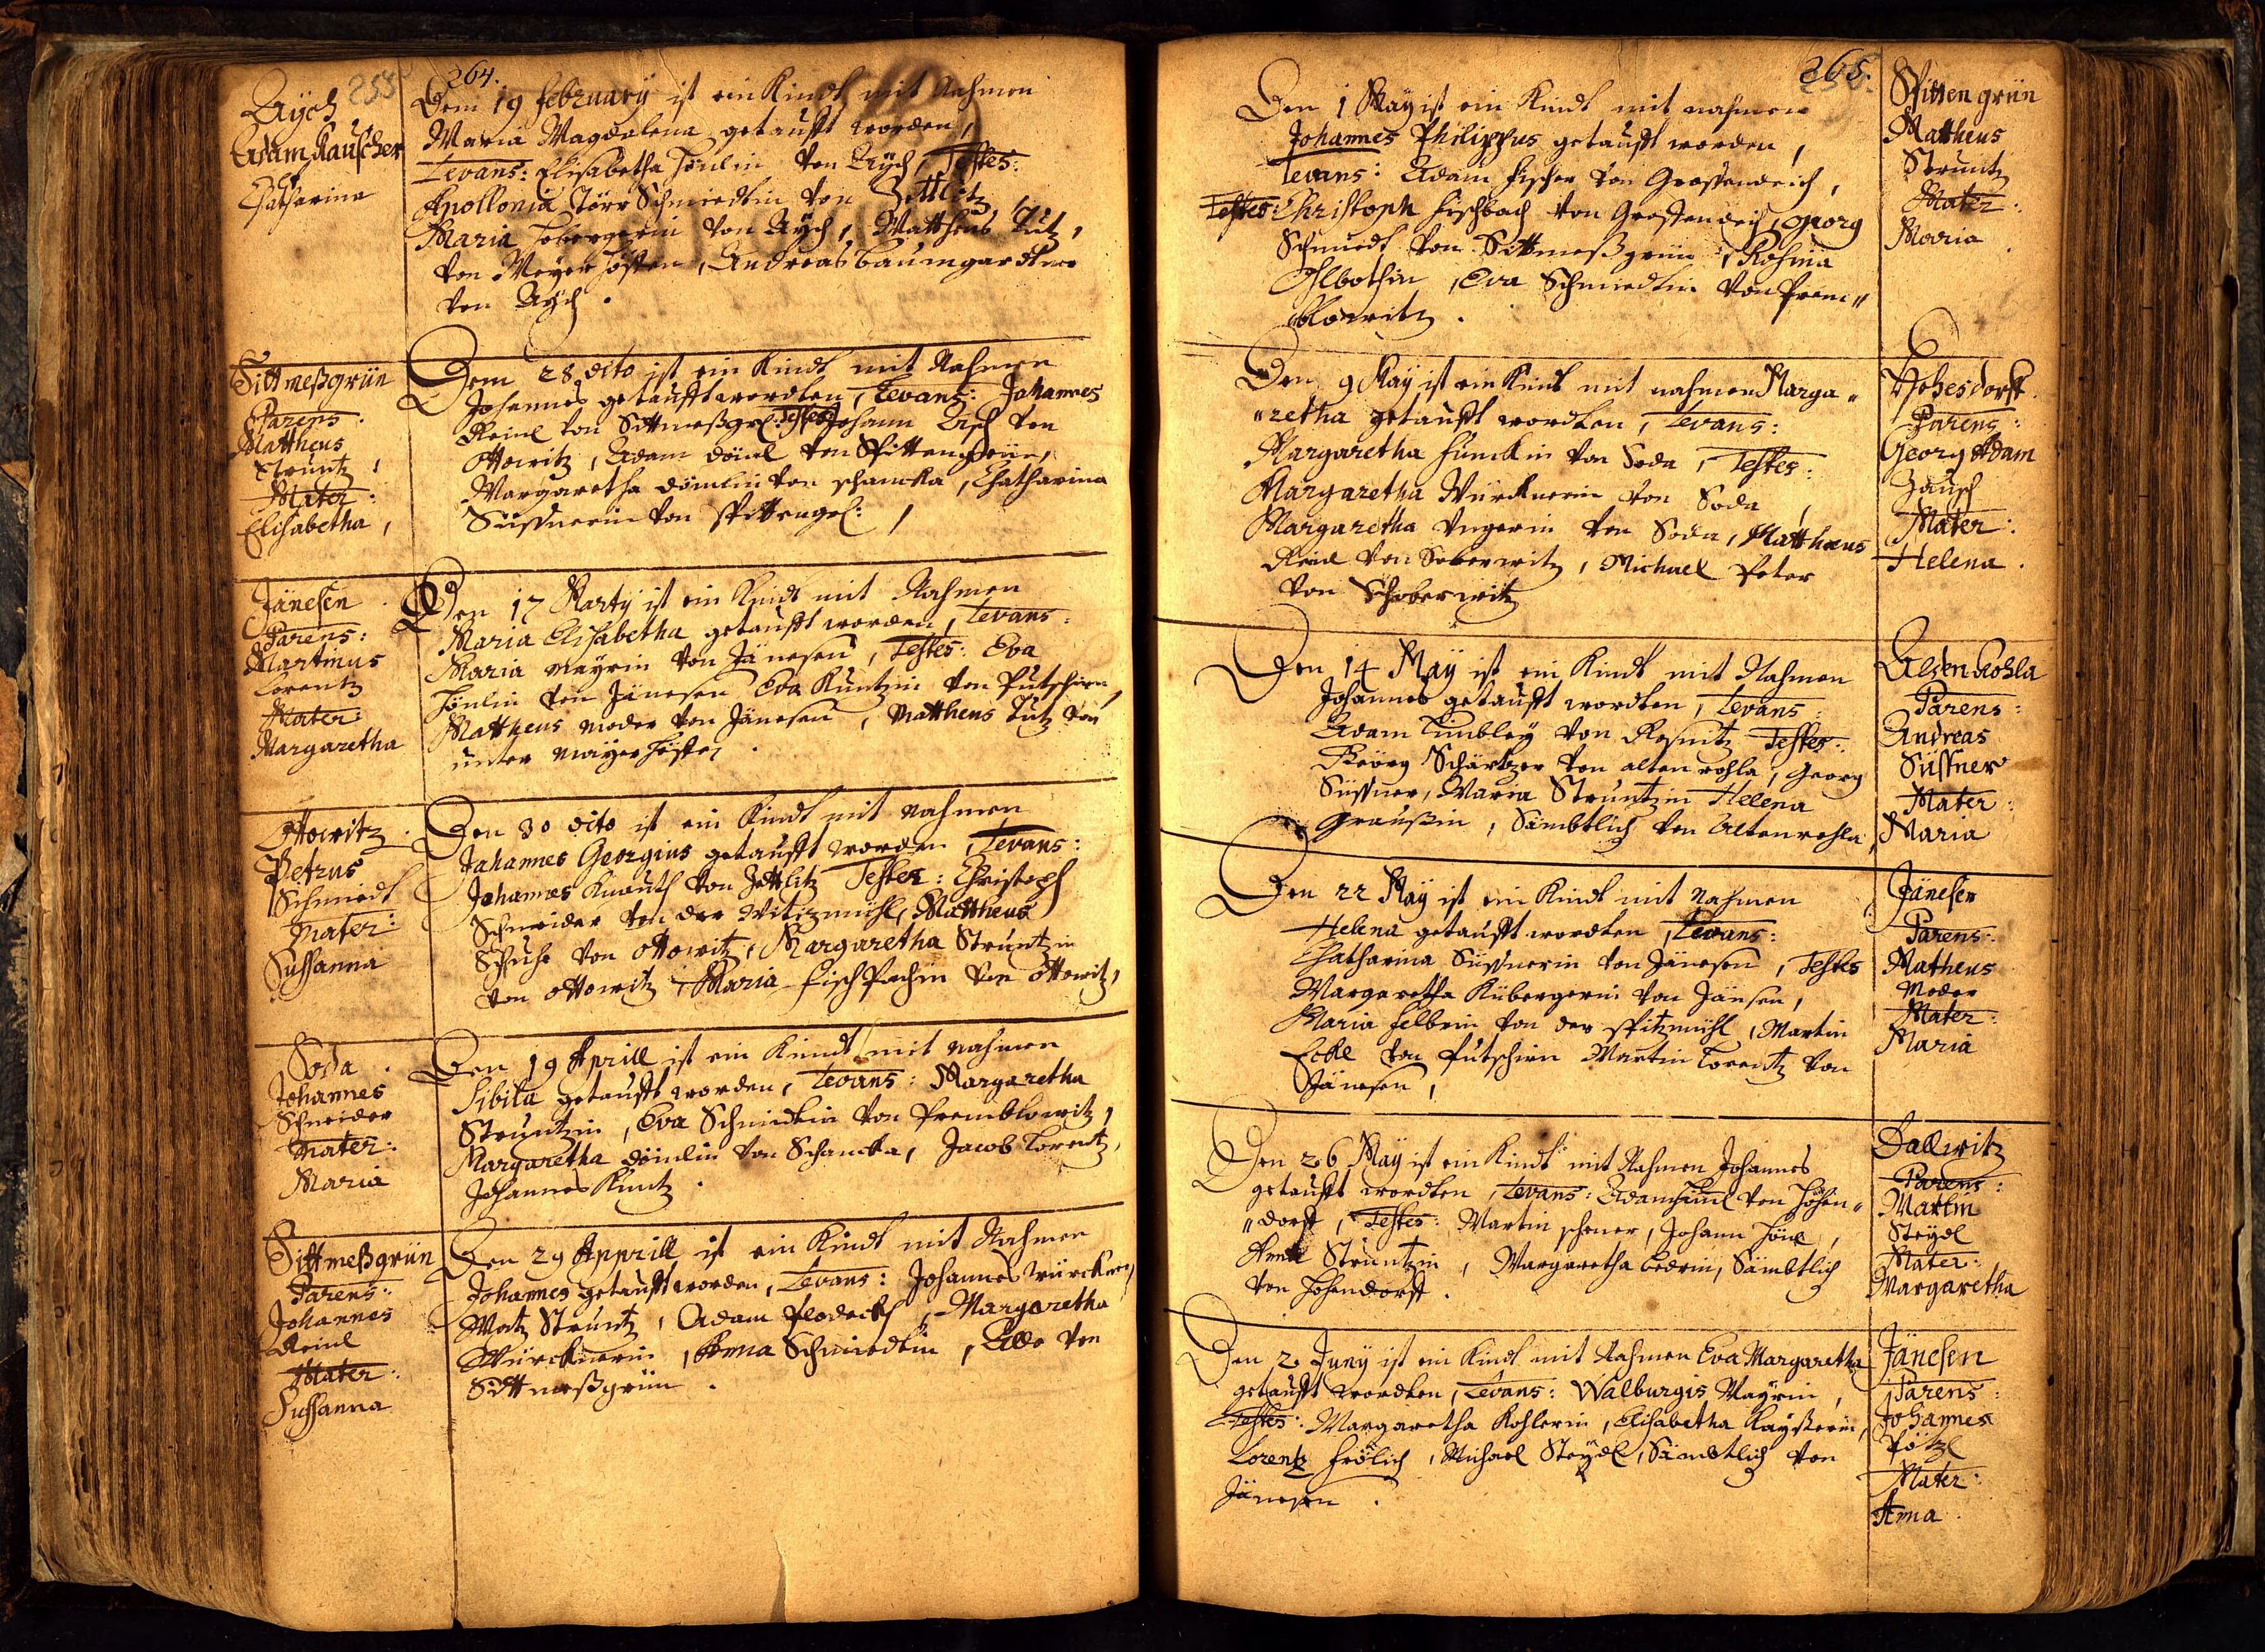 264.
255
Aÿch
Adam Rauscher
Catharina
Dem 19 february ist ein Kindt mit Nahmen
Maria Magdalena getaufft worden,
Levans: Elisabetha von Aÿch, Testes:
Apollonia Schmiedtin von Zettlitz
Maria von Aÿch, Mattheus Lutz,
von Meyerhöffen, Andreas Baumgardtner
von Aÿch.
Sittmeßgrün
Parens.
Mattheus
Struntz,
Mater:
Elisabetha,
Dem 28 dito ist ein Kindt mit Nahmen
Johannes getaufft wordten, Levans: Johannes
Reinl von Sittmeßgr: Testes Johann von
Ottowitz, Adam von Spittengrün,
Margaretha von schancka, Chatharina
Süssnerin von spittengr:,
Jänesen.
Parens:
Martinus
Lorentz
Mater:
Margaretha
Den 17 Marty ist ein Kindt mit Nahmen
Maria Elisabetha getaufft worden, Levans:
Maria Mayrin von Jänesen, Testes: Eva
von Jänesen Eva Kuntzin von Putschirn,
Mattheus Moder von Jänesen, Mattheus Lutz von
unter Mayerhöfen.
Ottowitz.
Petrus
Schmiedt
Mater:
Sussanna
Den 30 dito ist ein Kindt mit Nahmen
Johannes Georgius getaufft worden, Levans:
Johannes von Zettlitz Testes: Christoph
Schneider von der Witizmühl, Mattheus
von Ottowitz, Margaretha Struntzin
von Ottowitz, Maria Fischpachin von Ottowitz,
Soda.
Johannes
Schneider
Mater:
Maria
Den 19 Aprill ist ein Kindt mit Nahmen
Sibila getaufft worden, Levans: Margaretha
Struntzin, Eva Schmidtin von Premblowitz,
Margaretha von Schancka, Jacob Lorentz,
Johannes Kuntz.
Sittmeßgrün
Parens:
Johannes
Reinl
Mater:
Sussanna
Den 29 Apprill ist ein Kindt mit Nahmen
Johannes getaufft worden, Levans: Johannes Würckner,
Matz Struntz, Adam, Margaretha
Würcknerin, Anna Schmiedtin, Alle von
Sittmeßgrün.
265.
Den 1 May ist ein Kindt mit nahmen
Johannes Philippus getaufft worden,
Levans: Adam Fischer von Grossendeich,
Testes: Christoph Fischbach von Grossendeich, Georg
Schmiedt von Sittmeßgrün, Rosina
Eva Schmiedtin von Prem=
blowitz.
Spittengrün
Mattheus
Struntz
Mater:
Maria.
Den 9 May ist ein Kindt mit nahmen Marga=
=retha getaufft wordten, Levans:
Margaretha Funckin von Soda, Testes:
Margaretha Würcknerin von Soda,
Margaretha Ungerin von Soda, Matthæus
Reinl von Soberwitz, Michael Peter
von Schoberwitz
Hohesdorff.
Parens:
Georg Adam
Mater:
Helena.
Den 14 May ist ein Kindt mit Nahmen
Johannes getaufft wordten, Levans:
Adam von Rosnitz Testes:
Georg Schärtzer von alten rohla, Georg
Süssner, Maria Struntzin Helena
Graußin, Sämbtlich von Altenrohla,
Alten Rohla
Parens:
Andreas
Süssner
Mater:
Maria
Den 22 May ist ein Kindt mit Nahmen
Helena getaufft wordten, Levans:
Chatharina Süssnerin von Jänesen, Testes
Margaretha Kübergerin von Jänsen,
Maria von der spitzmühl, Martin
von Putschirn Martin Lorentz von
Jänesen,
Jänesen
Parens:
Matheus
Moder
Mater:
Maria
Den 26 May ist ein Kindt mit Nahmen Johannes
getaufft wordten, Levans: Adam von Hohen=
=dorff, Testes: Martin, Johann,
Anna Struntzin, Margaretha, Sämbtlich
von Hohendorff.
Dallwitz
Parens:
Martin
Steÿdl
Mater:
Margaretha
Den 2 Juny ist ein Kindt mit Nahmen Eva Margaretha
getaufft wordten, Levans: Walburgis Mayrin,
Testes: Margaretha Kohlerin, Elisabetha Kayserin,
Lorentz Frölich, Michael Steÿdl, Sämbtlich von
Jänesen.
Jänesen
Parens:
Johannes
Pötzl
Mater:
Anna.